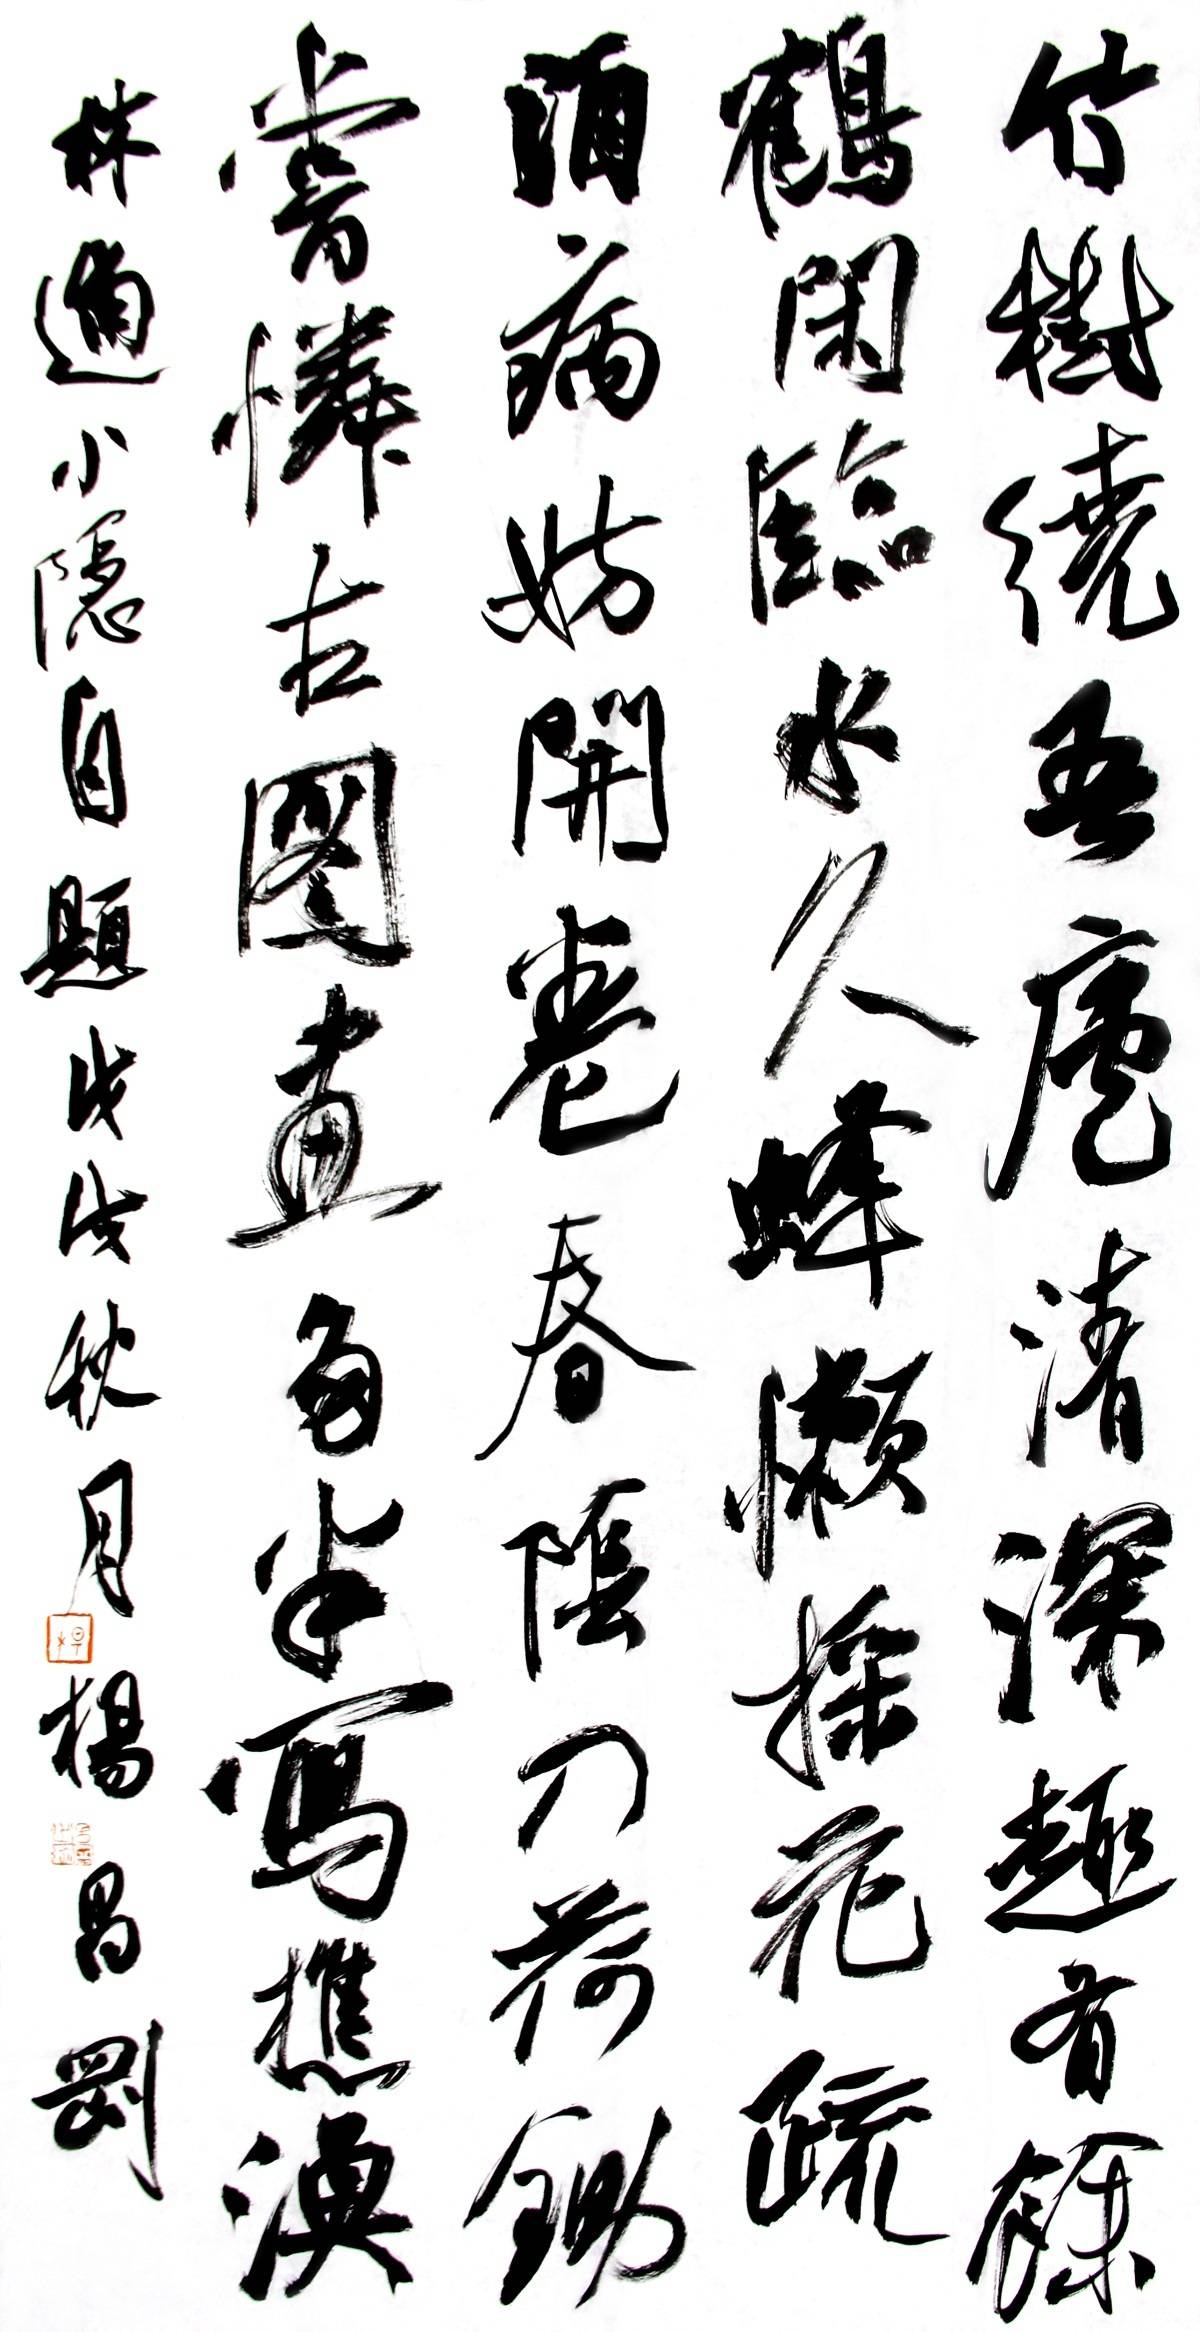 竹樹繞吾廬清深趣有餘
鶴閑臨水久蜂懶採花疏
酒病妨開卷春陰入荷鋤
嘗憐古圖畫多半寫樵漁
林逋小隱自題戊戌秋月楊昌剛